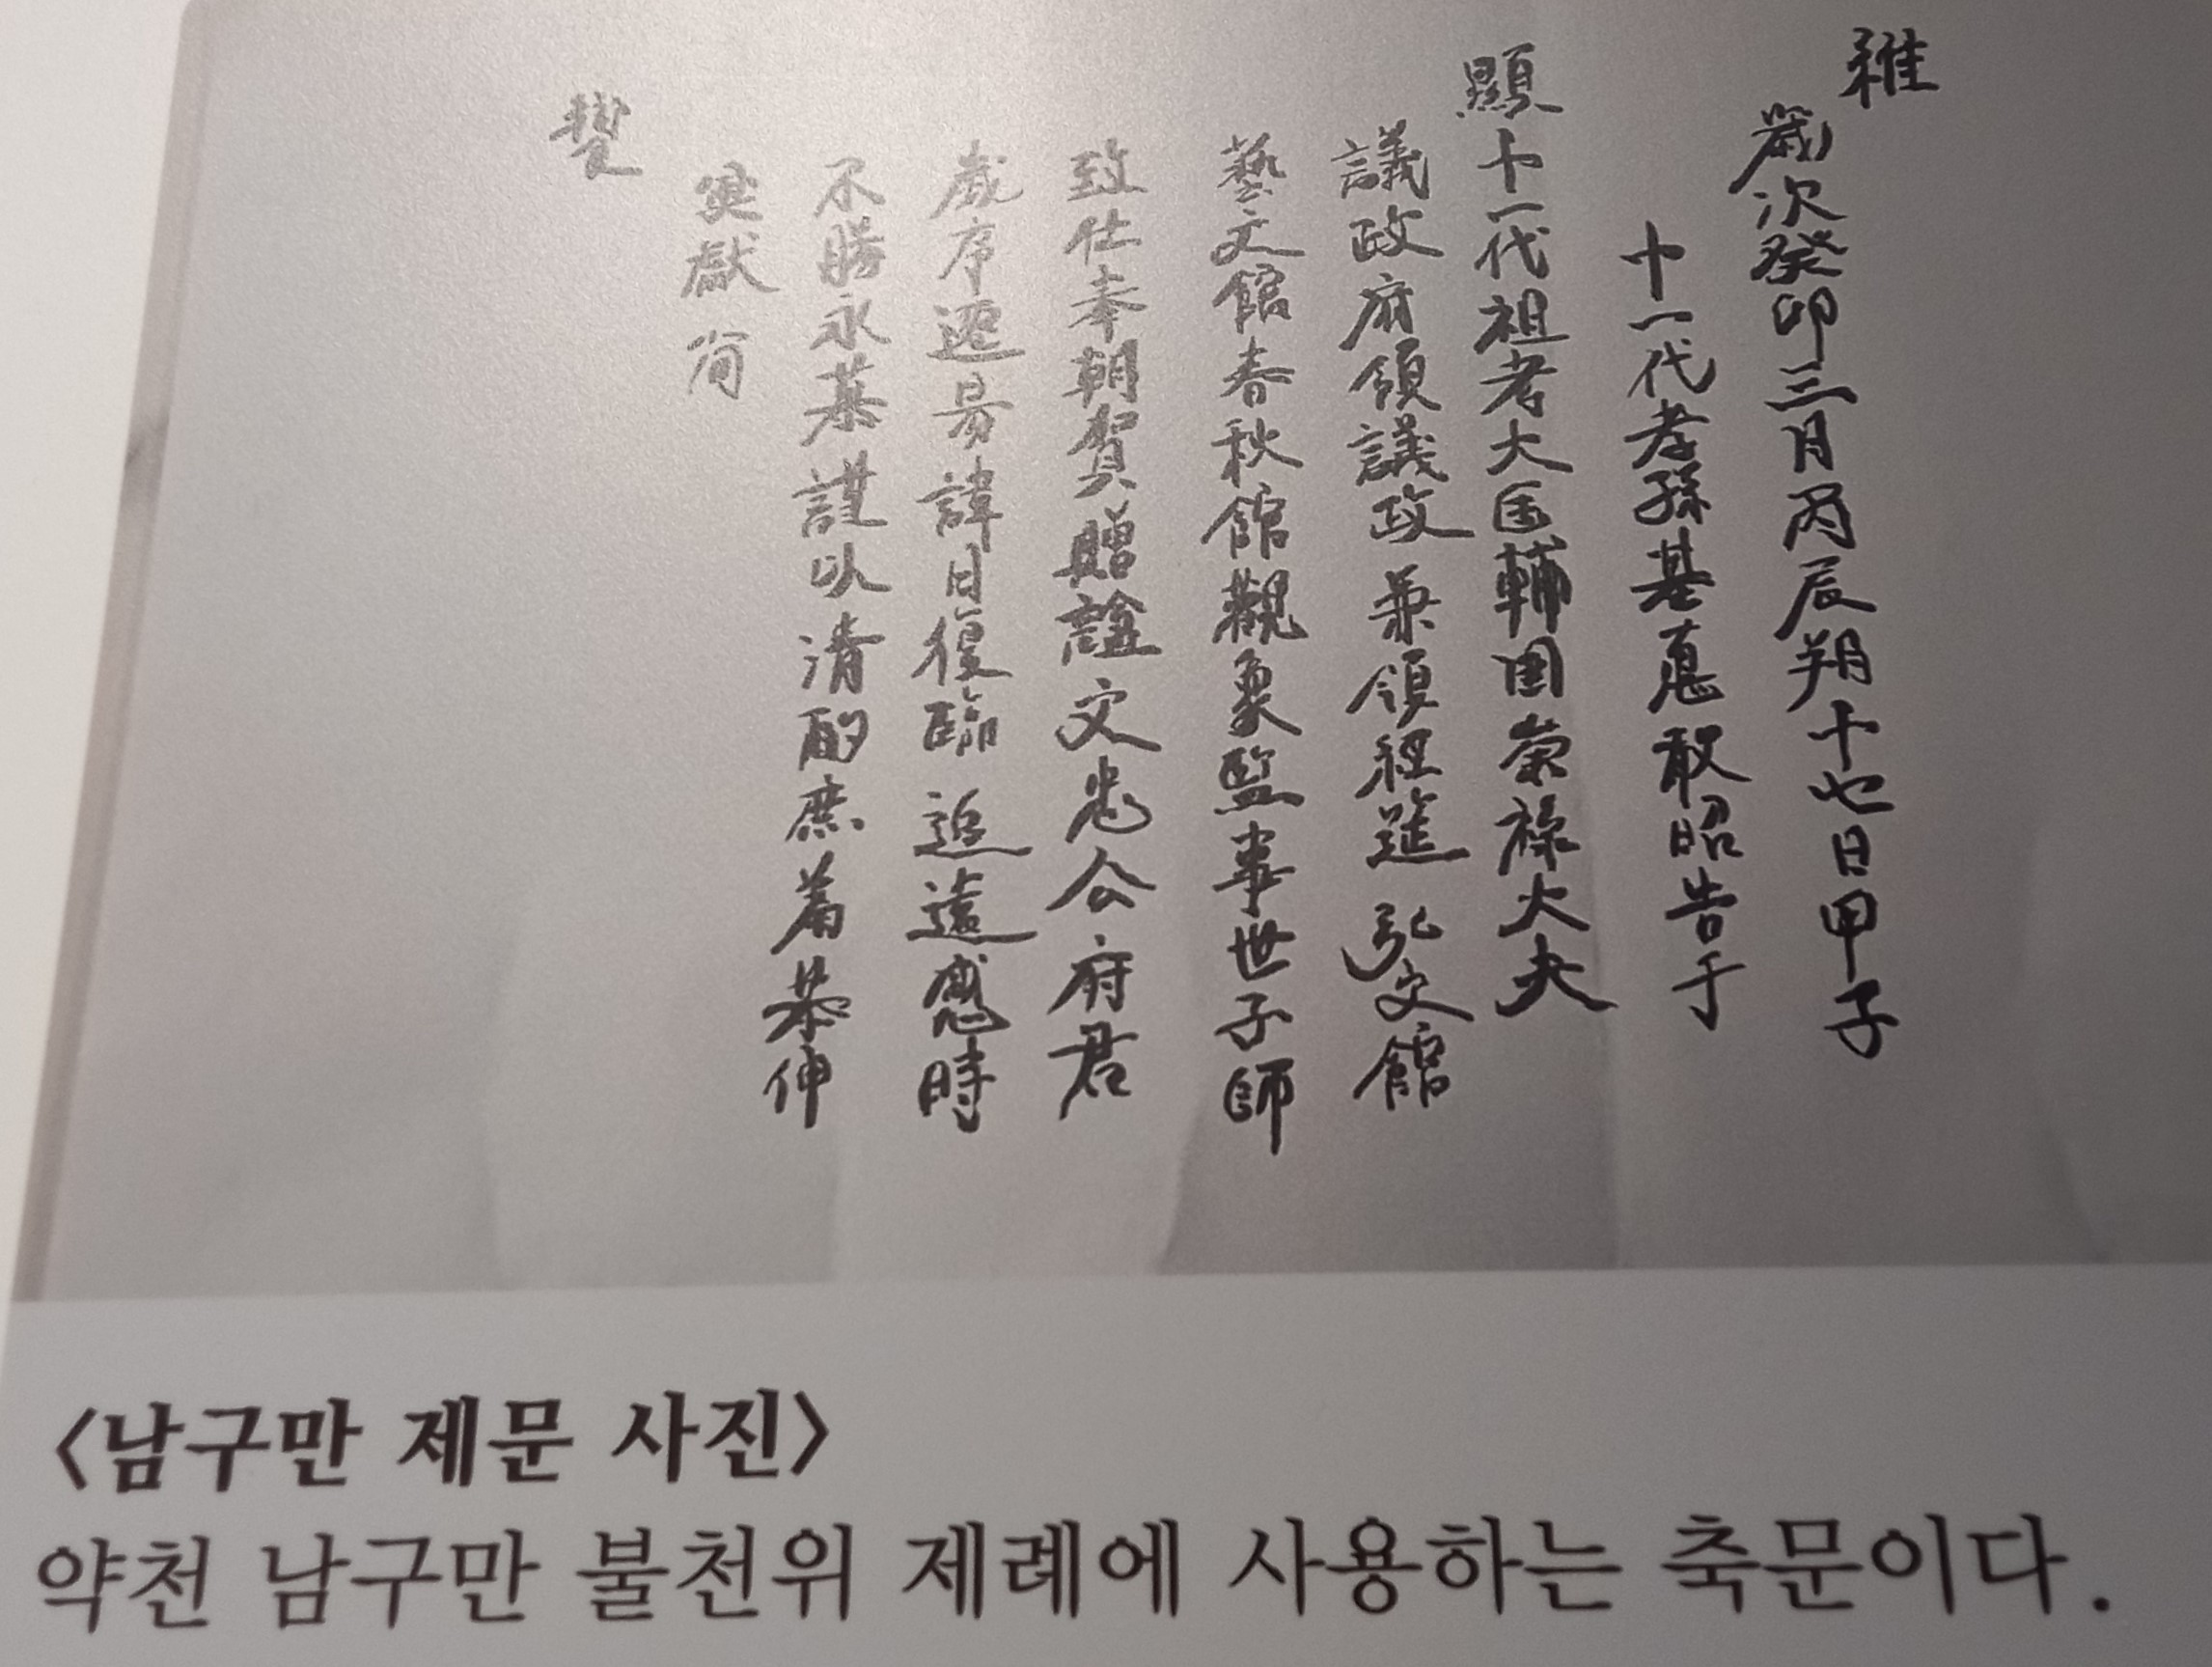 維
歲次癸卯三月丙辰朔十七日甲子
十一代孝孫基悳敢昭告于
顯十一代祖考大匡輔国崇祿大夫
議政府領議政兼領經筵弘文館
藝文館春秋館觀象監事世子師
致仕奉朝賀贈諡文忠公府君
歲序遷易諱日復臨追遠感時
不勝永慕謹以淸酌庶羞恭伸
奠獻尙
饗
<남구만 제문 사진>
약천 남구만 불천위 제례에 사용하는 축문이다.